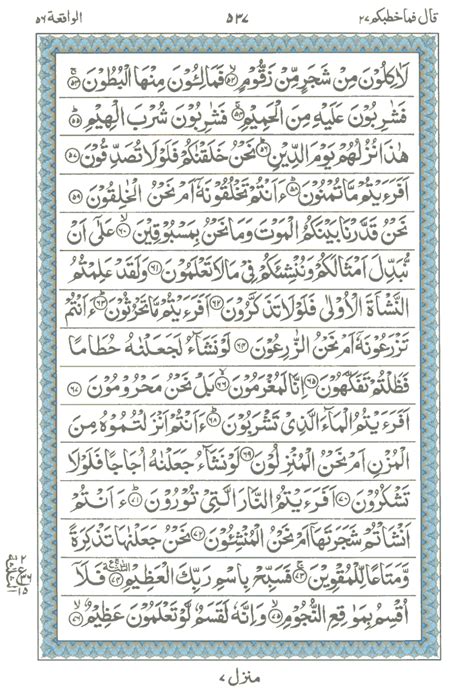 قال فما خطبكم ٢٧ ٥٣٧ الواقعة ٥٦
لَاٰكِلُوۡنَ مِنۡ شَجَرٍ مِّنۡ زَقُّوۡمٍ ۙ‏﴿۵۲﴾ فَمَالِـُٔوۡنَ مِنۡهَا الۡبُطُوۡنَ ۚ‏﴿۵۳﴾
فَشٰرِبُوۡنَ عَلَيۡهِ مِنَ الۡحَمِيۡمِ ۚ‏﴿۵۴﴾ فَشٰرِبُوۡنَ شُرۡبَ الۡهِيۡمِ ؕ‏﴿۵۵﴾
هٰذَا نُزُلُهُمۡ يَوۡمَ الدِّيۡنِ ؕ‏﴿۵۶﴾ نَحۡنُ خَلَقۡنٰكُمۡ فَلَوۡلَا تُصَدِّقُوۡنَ‏﴿۵۷﴾
اَفَرَءَيۡتُمۡ مَّا تُمۡنُوۡنَ ؕ‏﴿۵۸﴾ ءَاَنۡتُمۡ تَخۡلُقُوۡنَهٗۤ اَمۡ نَحۡنُ الۡخٰلِقُوۡنَ‏﴿۵۹﴾
نَحۡنُ قَدَّرۡنَا بَيۡنَكُمُ الۡمَوۡتَ وَمَا نَحۡنُ بِمَسۡبُوۡقِيۡنَ ۙ‏﴿۶۰﴾ عَلٰٓى اَنۡ
نُّبَدِّلَ اَمۡثَالَكُمۡ وَنُنۡشِئَكُمۡ فِىۡ مَا لَا تَعۡلَمُوۡنَ‏﴿۶۱﴾ وَلَقَدۡ عَلِمۡتُمُ
النَّشۡاَةَ الۡاُوۡلٰى فَلَوۡلَا تَذَكَّرُوۡنَ‏﴿۶۲﴾ اَفَرَءَيۡتُمۡ مَّا تَحۡرُثُوۡنَ ؕ‏﴿۶۳﴾ ءَاَنۡتُمۡ
تَزۡرَعُوۡنَهٗۤ اَمۡ نَحۡنُ الزّٰرِعُوۡنَ‏﴿۶۴﴾ لَوۡ نَشَآءُ لَجَعَلۡنٰهُ حُطَامًا
فَظَلۡتُمۡ تَفَكَّهُوۡنَ‏﴿۶۵﴾ اِنَّا لَمُغۡرَمُوۡنَ ۙ‏﴿۶۶﴾ بَلۡ نَحۡنُ مَحۡرُوۡمُوۡنَ‏﴿۶۷﴾
اَفَرَءَيۡتُمُ الۡمَآءَ الَّذِىۡ تَشۡرَبُوۡنَ ؕ‏﴿۶۸﴾ ءَاَنۡتُمۡ اَنۡزَلۡتُمُوۡهُ مِنَ
الۡمُزۡنِ اَمۡ نَحۡنُ الۡمُنۡزِلُوۡنَ‏﴿۶۹﴾ لَوۡ نَشَآءُ جَعَلۡنٰهُ اُجَاجًا فَلَوۡلَا
تَشۡكُرُوۡنَ‏﴿۷۰﴾ اَفَرَءَيۡتُمُ النَّارَ الَّتِىۡ تُوۡرُوۡنَ ؕ‏﴿۷۱﴾ ءَاَنۡتُمۡ
اَنۡشَاۡتُمۡ شَجَرَتَهَاۤ اَمۡ نَحۡنُ الۡمُنۡشِـُٔوۡنَ‏﴿۷۲﴾ نَحۡنُ جَعَلۡنٰهَا تَذۡكِرَةً
وَّمَتَاعًا لِّلۡمُقۡوِيۡنَ ۚ‏﴿۷۳﴾ فَسَبِّحۡ بِاسۡمِ رَبِّكَ الۡعَظِيۡمِ‏﴿۷۴﴾ فَلَاۤ
اُقۡسِمُ بِمَوٰقِعِ النُّجُوۡمِ ۙ‏﴿۷۵﴾ وَاِنَّهٗ لَقَسَمٌ لَّوۡ تَعۡلَمُوۡنَ عَظِيۡمٌ ۙ‏﴿۷۶﴾
منزل ٧